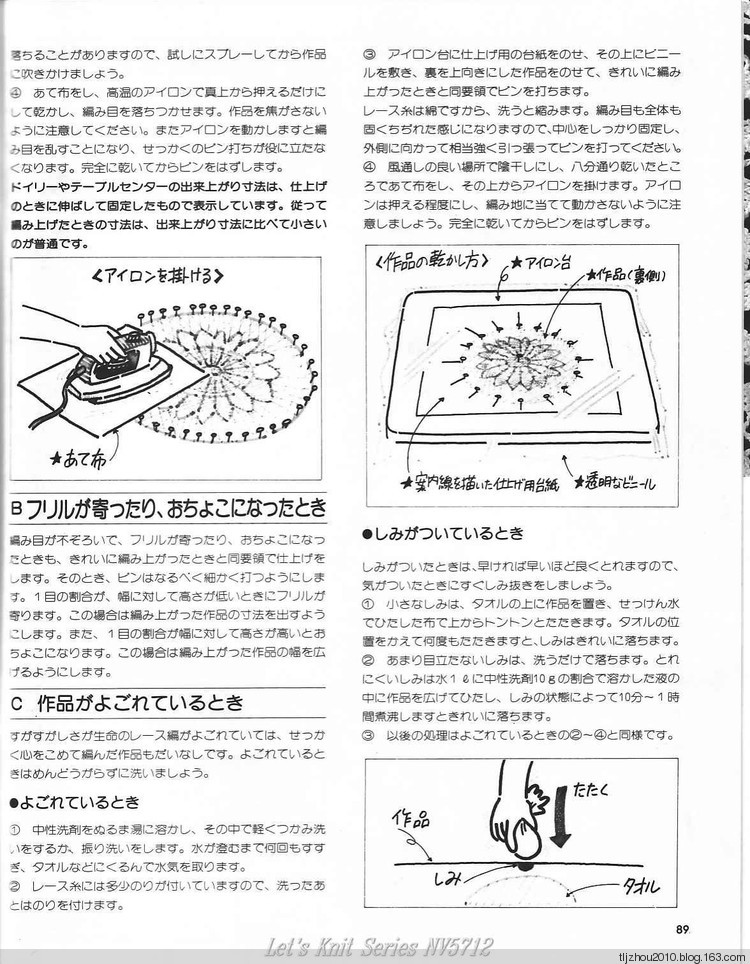 落ちることがありますので、試しにスプレーしてから作品
に吹きかけましょう。
④ あて布をし、高温のアイロンで真上から押えるだけに
して乾かし、編み目を落ちつかせます。作品を焦がさない
ように注意してください。またアイロンを動かしますと編
み目を乱すことになり、せっかくのピン打ちが役に立たな
くなります。完全に乾いてからピンをはずします。
ドイリーやテーブルセンターの出来上がり寸法は、仕上げ
のときに伸ばして固定したもので表示しています。従って
編み上げたときの寸法は、出来上がり寸法に比べて小さい
のが普通です。
〈アイロンを掛ける〉
★あて布
B フリルが寄ったり、おちょこになったとき
編み目が不ぞろいで、フリルが寄ったり、おちょこになっ
たときも、きれいに編み上がったときと同要領で仕上げを
します。そのとき、ピンはなるべく細かく打つようにしま
す。1目の割合が、幅に対して高さが低いときにフリルが
寄ります。この場合は編み上がった作品の寸法を出すよう
にします。また、1目の割合が幅に対して高さが高いとお
ちょこになります。この場合は編み上がった作品の幅を広
げるようにします。
C 作品がよごれているとき
すがすがしさが生命のレース編がよごれていては、せっか
く心をこめて編んだ作品もだいなしです。よごれていると
きはめんどうがらずに洗いましょう。
●よごれているとき
① 中性洗剤をぬるま湯に溶かし、その中で軽くつかみ洗
いをするか、振り洗いをします。水が澄むまで何回もすす
ぎ、タオルなどにくるんで水気を取ります。
② レース糸には多少のりが付いていますので、洗ったあ
とはのりを付けます。
③ アイロン台に仕上げ用の台紙をのせ、その上にビニー
ルを敷き、裏を上向きにした作品をのせて、きれいに編み
上がったときと同要領でピンを打ちます。
レース糸は綿ですから、洗うと縮みます。編み目も全体も
固くちぢれた感じになりますので、中心をしっかり固定し、
外側に向かって相当強く引っ張ってピンを打ってください。
④ 風通しの良い場所で陰干しにし、八分通り乾いたとこ
ろであて布をし、その上からアイロンを掛けます。アイロ
ンは押える程度にし、編み地に当てて動かさないように注
意しましょう。完全に乾いてからピンをはずします。
〈作品の乾かし方〉
★アイロン台
★作品(裏側)
★案内線を描いた仕上げ用台紙
★透明なビニール
●しみがついているとき
しみがついたときは、早ければ早いほど良くとれますので、
気がついたときにすぐしみ抜きをしましょう。
① 小さなしみは、タオルの上に作品を置き、せっけん水
でひたした布で上からトントンとたたきます。タオルの位
置をかえて何度もたたきますと、しみはきれいに落ちます。
② あまり目立たないしみは、洗うだけで落ちます。とれ
にくいしみは水1ℓに中性洗剤10gの割合で溶かした液の
中に作品を広げてひたし、しみの状態によって10分～1時
間煮沸しますときれいに落ちます。
③ 以後の処理はよごれているときの②～④と同様です。
たたく
作品
しみ
タオル
89
Let's Knit Series NV5712
tljzhou2010.blog.163.com